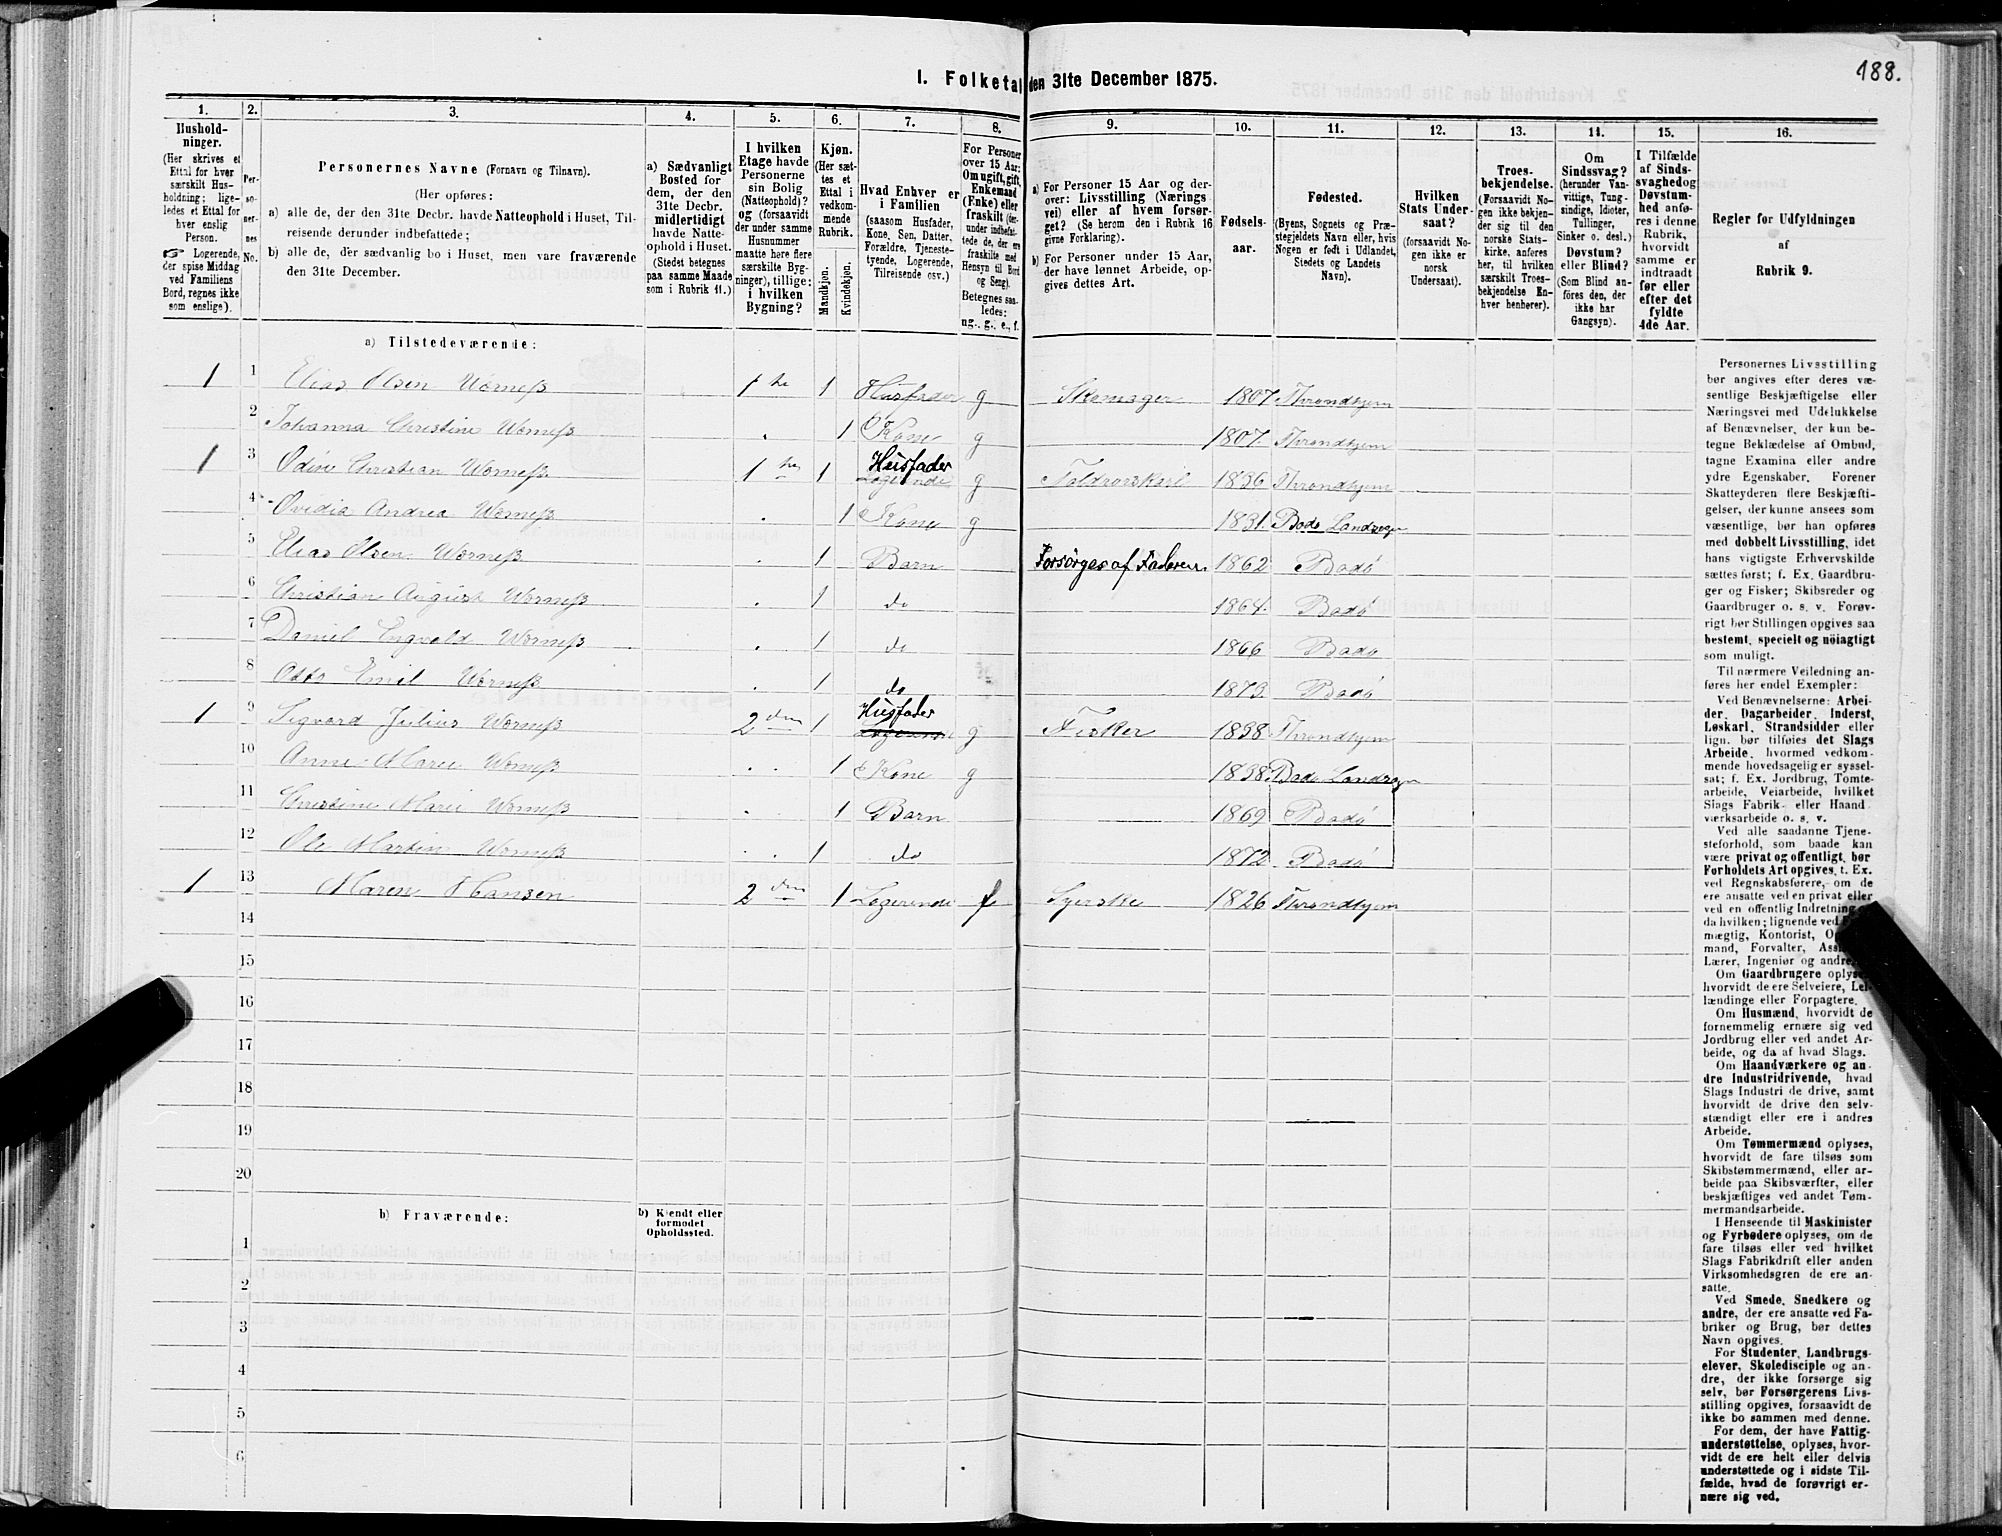 188.
I. Folketal den 31te December 1875.
1. 2. 3. 4. 5. 6. 7. 8. 9. 10. 11. 12. 13. 14. 15. 16.
Husholdninger.
(Her skrives et
Ettal for hver
særskilt Hus-
holdning; lige-
ledes et Ettal for
hver enslig
Person.
☞ Logerende,
der spise Middag
ved Familiens
Bord, regnes ikke
som enslige).
Per-
so-
ner-
nes
No.
Personernes Navne (Fornavn og Tilnavn).
(Her opføres:
a) alle de, der den 31te Decbr. havde Natteophold i Huset, Til-
reisende derunder indbefattede;
b) alle de, der sædvanlig bo i Huset, men vare fraværende
den 31te December.
a) Sædvanligt
Bosted for
dem, der den
31te Decbr.
midlertidigt
havde Natte-
ophold i Huset.
(Stedet betegnes
paa samme Maade
som i Rubrik 11.)
I hvilken
Etage havde
Personerne
sin Bolig
(Natteophold)?
og (forsaavidt
der under samme
Husnummer
maatte høre flere
særskilte Byg-
ninger), tillige:
i hvilken
Bygning?
Kjøn.
(Her sæt-
tes et
Ettal i
vedkom-
mende
Rubrik.
Mandkjøn.
Kvindekjøn.
Hvad Enhver er
i Familien
(saasom Husfader,
Kone, Søn, Datter,
Forældre, Tjeneste-
tyende, Logerende,
Tilreisende osv.)
For Personer
over 15 Aar:
Om ugift, gift,
Enkemand
(Enke) eller
fraskilt (der-
under indbefat-
tede de, der ere
fraskilte med
Hensyn til Bord
og Seng).
Betegnes saa-
ledes:
ug., g., e., f.
a) For Personer 15 Aar og der-
over: Livsstilling (Nærings
vei) eller af hvem forsør-
get? (Se herom den i Rubrik 16
givne Forklaring).
b) For Personer under 15 Aar,
der have lønnet Arbeide, op-
gives dettes Art.
Fødsels-
aar.
Fødested.
(Byens, Sognets og Præ-
stegjeldets Navn eller, hvis
Nogen er født i Udlandet,
Stedets og Landets
Navn).
Hvilken
Stats Under-
saat?
(forsaavidt No-
gen ikke er
norsk
Undersaat).
Troes-
bekjendelse.
(Forsaavidt No-
gen ikke bekjen-
der sig til den
norske Stats-
kirke, anføres
her, til hvilken
særskilt Troes-
bekjendelse En-
hver henhører).
Om
Sindssvag?
(herunder Van-
vittige, Tung-
sindige, Idioter,
Tullinger,
Sinker o. desl.)
Døvstum?
eller Blind?
(Som Blind an-
føres den, der
ikke har
Gangsyn).
I Tilfælde
af Sinds-
svaghed og
Døvstum-
hed anfø-
res i denne
Rubrik,
hvorvidt
samme er
indtraadt
før eller
efter det
fyldte
4de Aar.
Regler for Udfyldningen
af
Rubrik 9.
a) Tilstedeværende:
1 1 Elias Olsen Wærneß 1ste 1 Husfader g 1807 Throndhjem
2 Johanna Christine Wærneß 1 Kone g 1807. Throndhjem
1 3 Christian Wærneß 1ste 1 Husfader Logerende g 1836 Throndhjem
4 Ovidia Andrea Wærneß 1 Kone g 1831. Bodø Landsogn
5 Elias Olsen Wærneß 1 Barn Forsørges af Faderen 1862 Bodø
6 Christian August Wærneß 1 do 1864. Bodø
7 Daniel Ingvald Wærneß 1 do 1866 Bodø
8 Otto Emil Wærneß 1 do 1873. Bodø
1 9 Sigvard Julius Wærneß 2den 1 Husfader Logerende g Fisker 1838 Throndhjem
10 Anne Marie Wærneß 1 Kone g 1838. Bodø Landsogn
11 Christine Marie Wærneß 1 Barn 1869 Bodø
12 Ole Martin Wærneß 1 do 1872 Bodø
1 13 Maren Hansen 2den 1 Logerende Syerske 1826 Throndhjem
14
15
16
17
18
19
20
b) Fraværende:
b) Kjendt eller
formodet
Opholdssted.
1
2
3
4
5
6
Personernes Livsstilling
bør angives efter deres væ-
sentlige Beskjæftigelse eller
Næringsvei med Udelukkelse
af Benævnelser, der kun be-
tegne Beklædelse af Ombud,
tagne Examina eller andre
ydre Egenskaber. Forener
Skatteyderen flere Beskjæfti-
gelser, der kunne ansees som
væsentlige, bør han opføres
med dobbelt Livsstilling, idet
hans vigtigste Erhvervskilde
sættes først; f. Ex. Gaardbru-
ger og Fisker; Skibsreder og
Gaardbruger o. s. v. Forøv-
rigt bør Stillingen opgives saa
bestemt, specielt og nöiagtigt
som muligt.
Til nærmere Veiledning an-
føres her endel Exempler:
Ved Benævnelserne: Arbei-
der, Dagarbeider, Inderst,
Løskarl, Strandsidder eller
lign. bør tilføies det Slags
Arbeide, hvormed vedkom-
mende hovedsagelig er syssel-
sat; f. Ex. Jordbrug, Tomte-
arbeide, Veiarbeide, hvilket
Slags Fabrik- eller Haand-
værksarbeide o. s. v.
Ved alle saadanne Tjene-
steforhold, som baade kan
være privat og offentligt, bør
Forholdets Art opgives, f. Ex.
ved Regnskabsførere, om de
ere ansatte ved en privat eller
ved en offentlig Indretning
da hvilken; lignende ved
mægtig, Kontorist,
mand, Forvalter,
Lærer, Ingeniør og andre
Om Gaardbrugere
hvorvidt de ere Selveiere,
lændinge eller Forpagtere.
Om Husmænd, hvorvidt de
fornemmelig ernære sig ved
Jordbrug eller ved andet Ar-
beide, og da af hvad Slags.
Om Haandværkere og an-
dre Industridrivende, hvad
Slags Industri de drive, samt
hvorvidt de drive den selv-
stændigt eller ere i andres
Arbeide.
Om Tømmermænd oplyses,
hvorvidt de fare tilsøs som
Skibstømmermænd, eller ar-
beide paa Skibsværfter, eller
beskjæftiges ved andet Tøm-
mermandsarbeide.
I Henseende til Maskinister
og Fyrbødere oplyses, om de
fare tilsøs eller ved hvilket
Slags Fabrikdrift eller anden
Virksomhedsgren de ere an-
satte.
Ved Smede, Snedkere og
andre, der ere ansatte ved Fa-
briker og Brug, bør dettes
Navn opgives.
For Studenter, Landbrugs-
elever, Skoledisciple og an-
dre, der ikke forsørge sig
selv, bør Forsørgerens Livs-
stilling opgives, forsaavidt de
ikke bo sammen med denne.
For dem, der have Fattig-
understøttelse, oplyses, hvor-
vidt de ere helt eller delvis
understøttede og i sidste Til-
fælde, hvad de forøvrigt er-
nære sig ved.